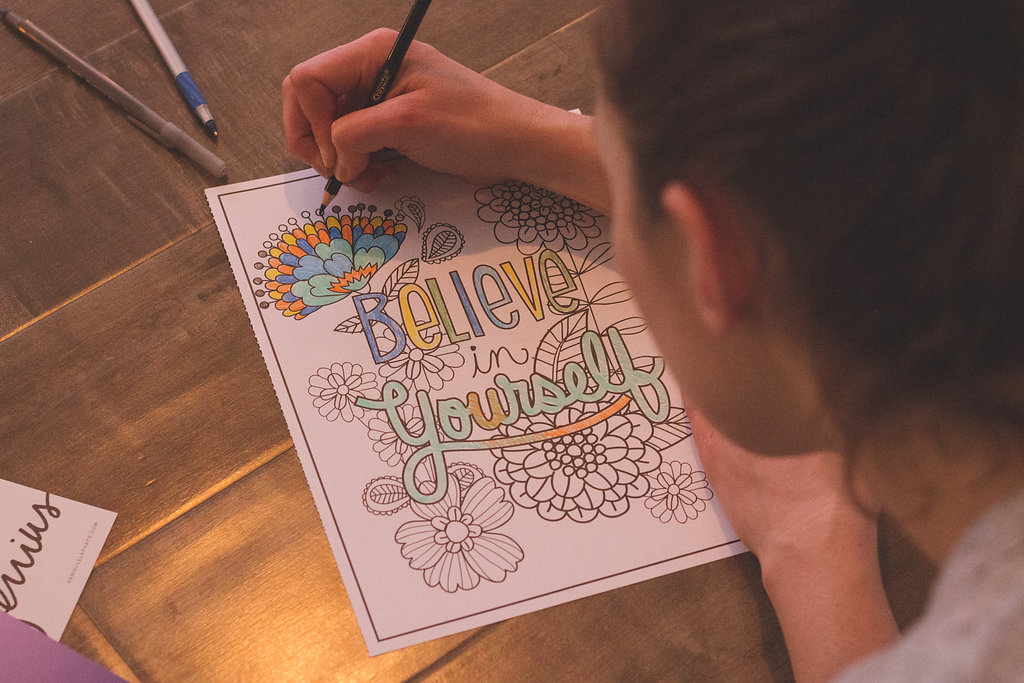 Believe
in
Yourself
enius
DANIELLELAPORTE.COM